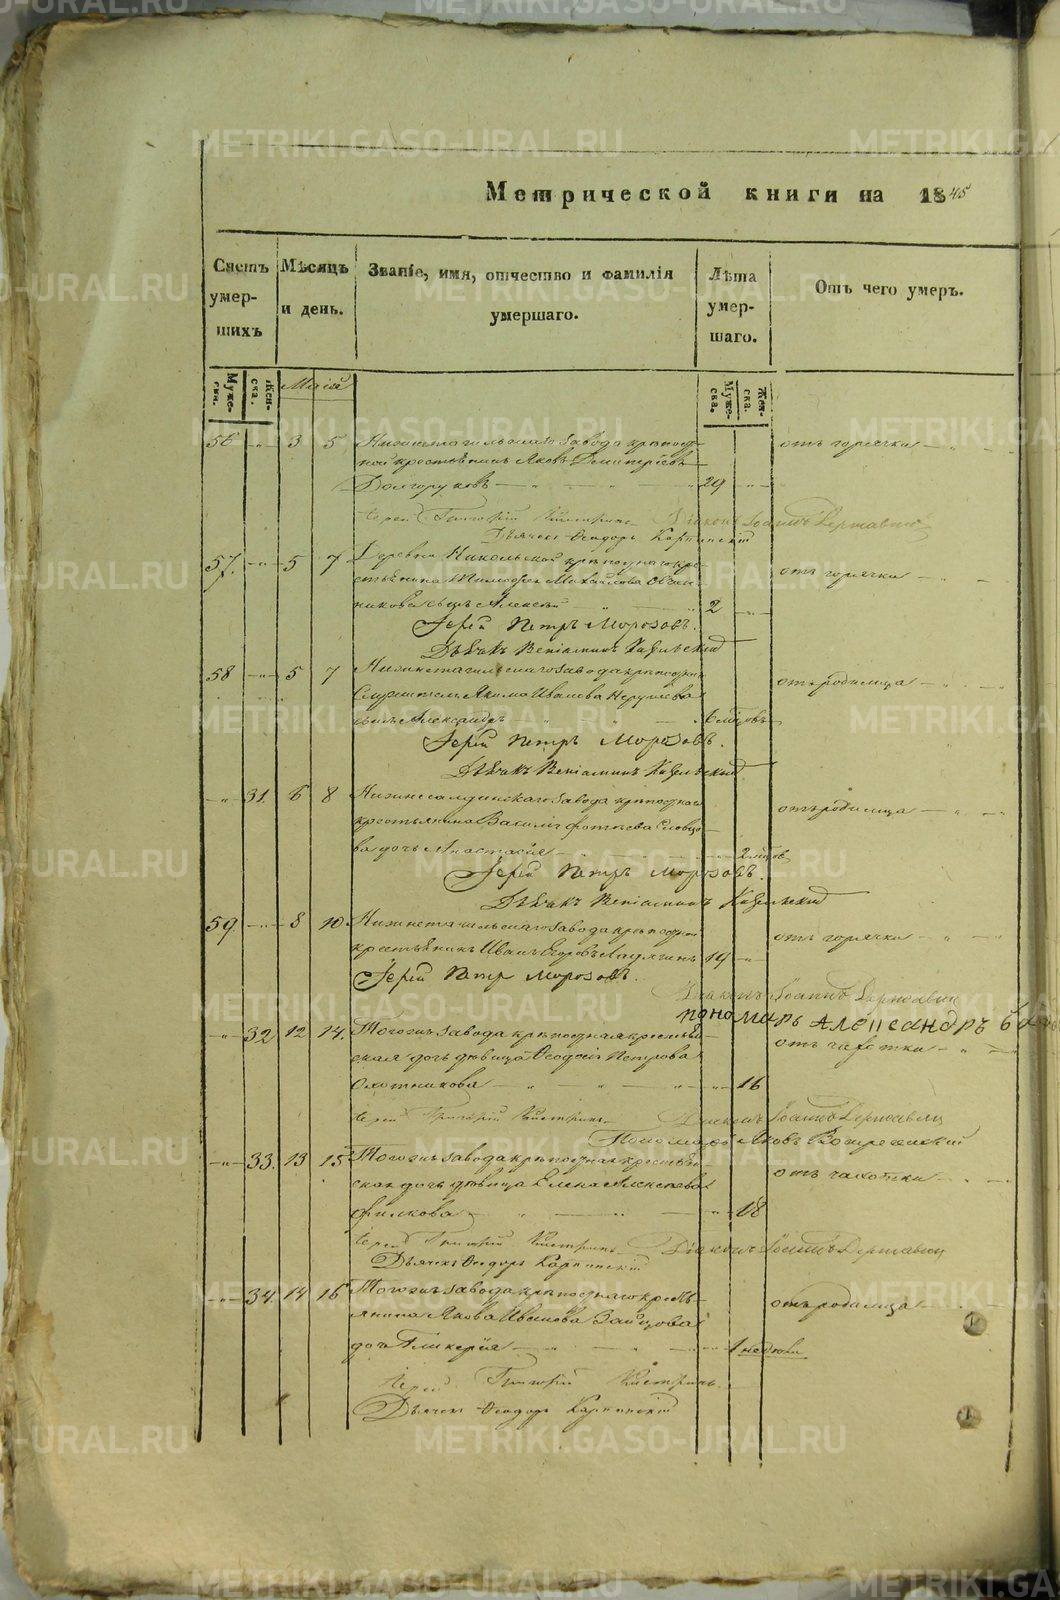 Метрической книги на 1845
Счетъ умершихъ
Мѣсяцъ и день.
Званіе, имя, отчество и фамилія умершаго.
Лѣта умершаго.
Отъ чего умеръ.
Мужеска.
Женска.
Маія
Мужеска.
Женска.
56 - 3 5 Нижнетагильскаго завода крѣпост-
ной крестьянинъ Яковъ Димитріевъ
Долгоруковъ 29 отъ горячки
Іерей Григорій Діаконъ Іоаннъ Державинъ
Дьячекъ Ѳеодоръ Карпинскій
57. - 5 7 Деревни Никольской крѣпостнаго кре-
стьянина Тимофея Михайлова Овчин-
никова сынъ Алексѣй 2 отъ горячки
Іерей Петръ Морозовъ.
Дьячекъ Веніаминъ
58 - 5 7 Нижнетагильскаго завода крѣпостнаго
Служителя Якима Иванова
сынъ Александръ 6 мѣсцовъ отъ родимца
Іерей Петръ Морозовъ.
Дьячекъ Веніаминъ
- 31. 6 8 Нижнесалдинскаго завода крѣпостнаго
крестьянина Василія Фотіева
дочь Анастасія 2 мѣсцов отъ родимца
Іерей Петръ Морозовъ.
Дьячекъ Веніаминъ
59. - 8 10 Нижнетагильскаго завода крѣпостной
крестьянинъ Иванъ Егоровъ 19 отъ горячки
Іерей Петръ Морозовъ.
Діаконъ Іоаннъ Державин
пономарь Александръ
- 32 12 14. Тогожъ завода крѣпостная крестьян-
ская дочь дѣвица Ѳеодосія Петрова
Охотникова 16 отъ чахотки
Іерей Григорій Діаконъ Іоаннъ Державин
Пономарь Яковъ
- 33. 13 15 Тогожъ завода крѣпостная крестьян-
ская дочь дѣвица Елена Алексѣева
Филкова 18 отъ чахотки
Іерей Григорій Діаконъ Іоаннъ Державин
Дьячекъ Ѳеодоръ Карпинскій
- 34. 14 16 Тогожъ завода крѣпостнаго кресть-
янина Якова Иванова Зайцова
дочь Гликерія 1 недѣли отъ родимца
Іерей Григорій
Дьячекъ Ѳеодоръ Карпинскій
METRIKI.GASO-URAL.RU